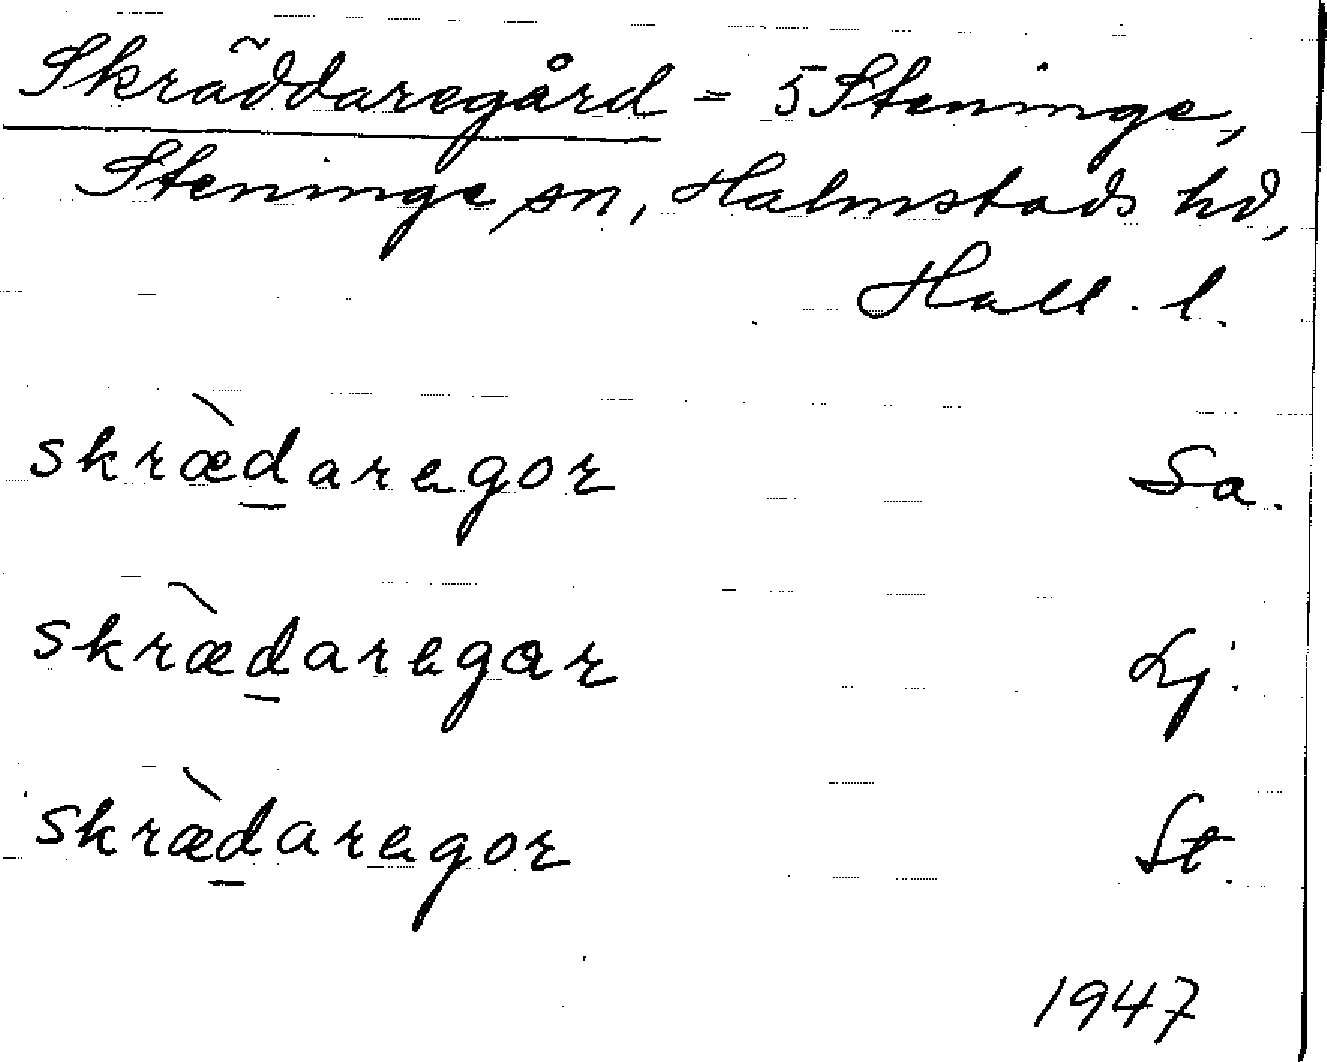 Skräddaregård = 5 Steninge,
Steninge sn, Halmstads hd,
Hall. l.
skræ̀daregor Sa.
skræ̀daregɑr Lj.
skræ̀daregor St.
1947